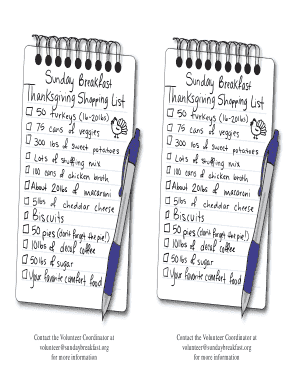 Sunday Breakfast
Thanksgiving Shopping List
50 turkeys (16-20lbs)
75 cans of veggies
300 lbs of sweet potatoes
Lots of stuffing mix
100 cans of chicken broth
About 20lbs of macaroni
5lbs of cheddar cheese
Biscuits
50 pies (don't forget the pie!)
10lbs of decaf coffee
50lbs of sugar
Your favorite comfort food
Contact the Volunteer Coordinator at
volunteer@sundaybreakfast.org
for more information
Sunday Breakfast
Thanksgiving Shopping List
50 turkeys (16-20lbs)
75 cans of veggies
300 lbs of sweet potatoes
Lots of stuffing mix
100 cans of chicken broth
About 20lbs of macaroni
5lbs of cheddar cheese
Biscuits
50 pies (don't forget the pie!)
10lbs of decaf coffee
50lbs of sugar
Your favorite comfort food
Contact the Volunteer Coordinator at
volunteer@sundaybreakfast.org
for more information